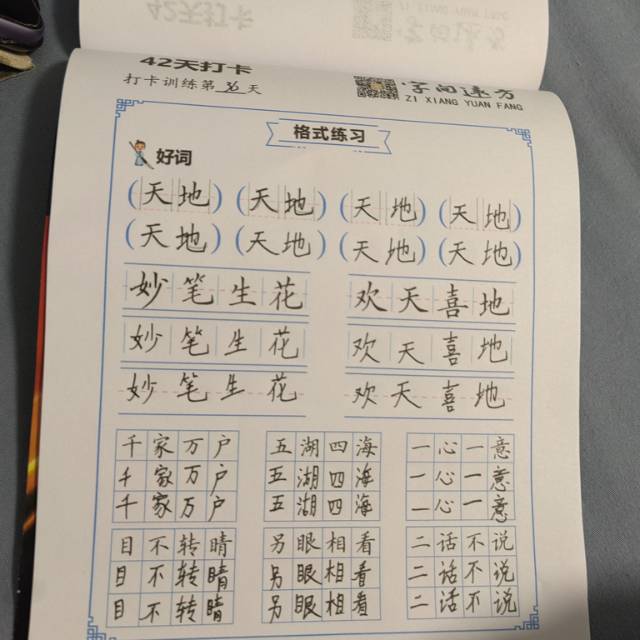 42天打卡
打卡训练第 天
字向远方
ZI XIANG YUAN FANG
格式练习
好词
(天地) (天地) (天地) (天地)
(天地) (天地) (天地) (天地)
妙笔生花 欢天喜地
妙笔生花 欢天喜地
妙笔生花 欢天喜地
千家万户 五湖四海 一心一意
千家万户 五湖四海 一心一意
千家万户 五湖四海 一心一意
目不转睛 另眼相看 二话不说
目不转睛 另眼相看 二话不说
目不转睛 另眼相看 二话不说